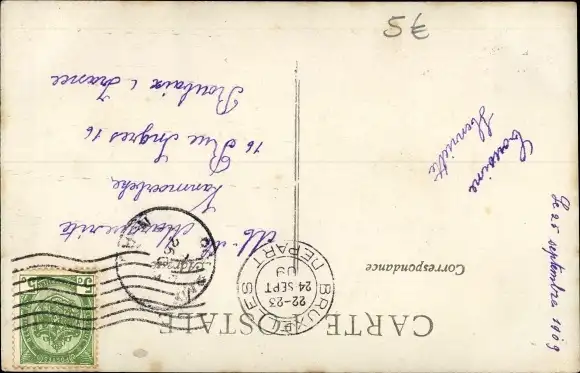 CARTE POSTALE
Correspondance
BRUXELLES
22-23
24 SEPT
09
DEPART
25
5c
Mlle Marguerite
Vanmoerbeke,
Rue Ingres 16
16
Roubaix, France
Cousine
Henriette
Le 25 septembre 1909
5€